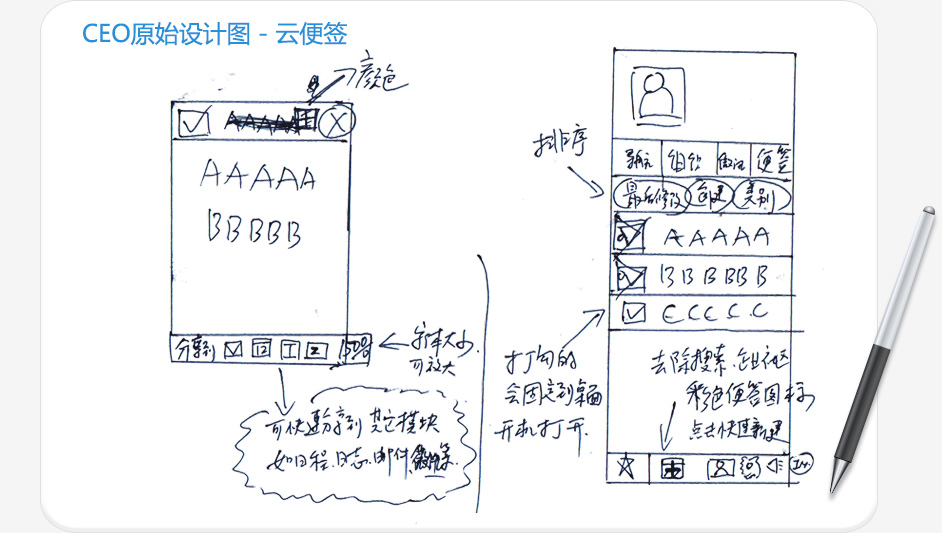 CEO原始设计图 - 云便签
颜色
AAAAA
BBBBB
分享到
字体大小
可放大
可快速分享到其它模块
如日程.日志.邮件
排序
组织
便签
最后修改 创建 类别
AAAAA
BBBBBB
CCCCC
打勾的
会固定到桌面
开机打开.
去除搜索.
彩色便签图标
点击快速新建